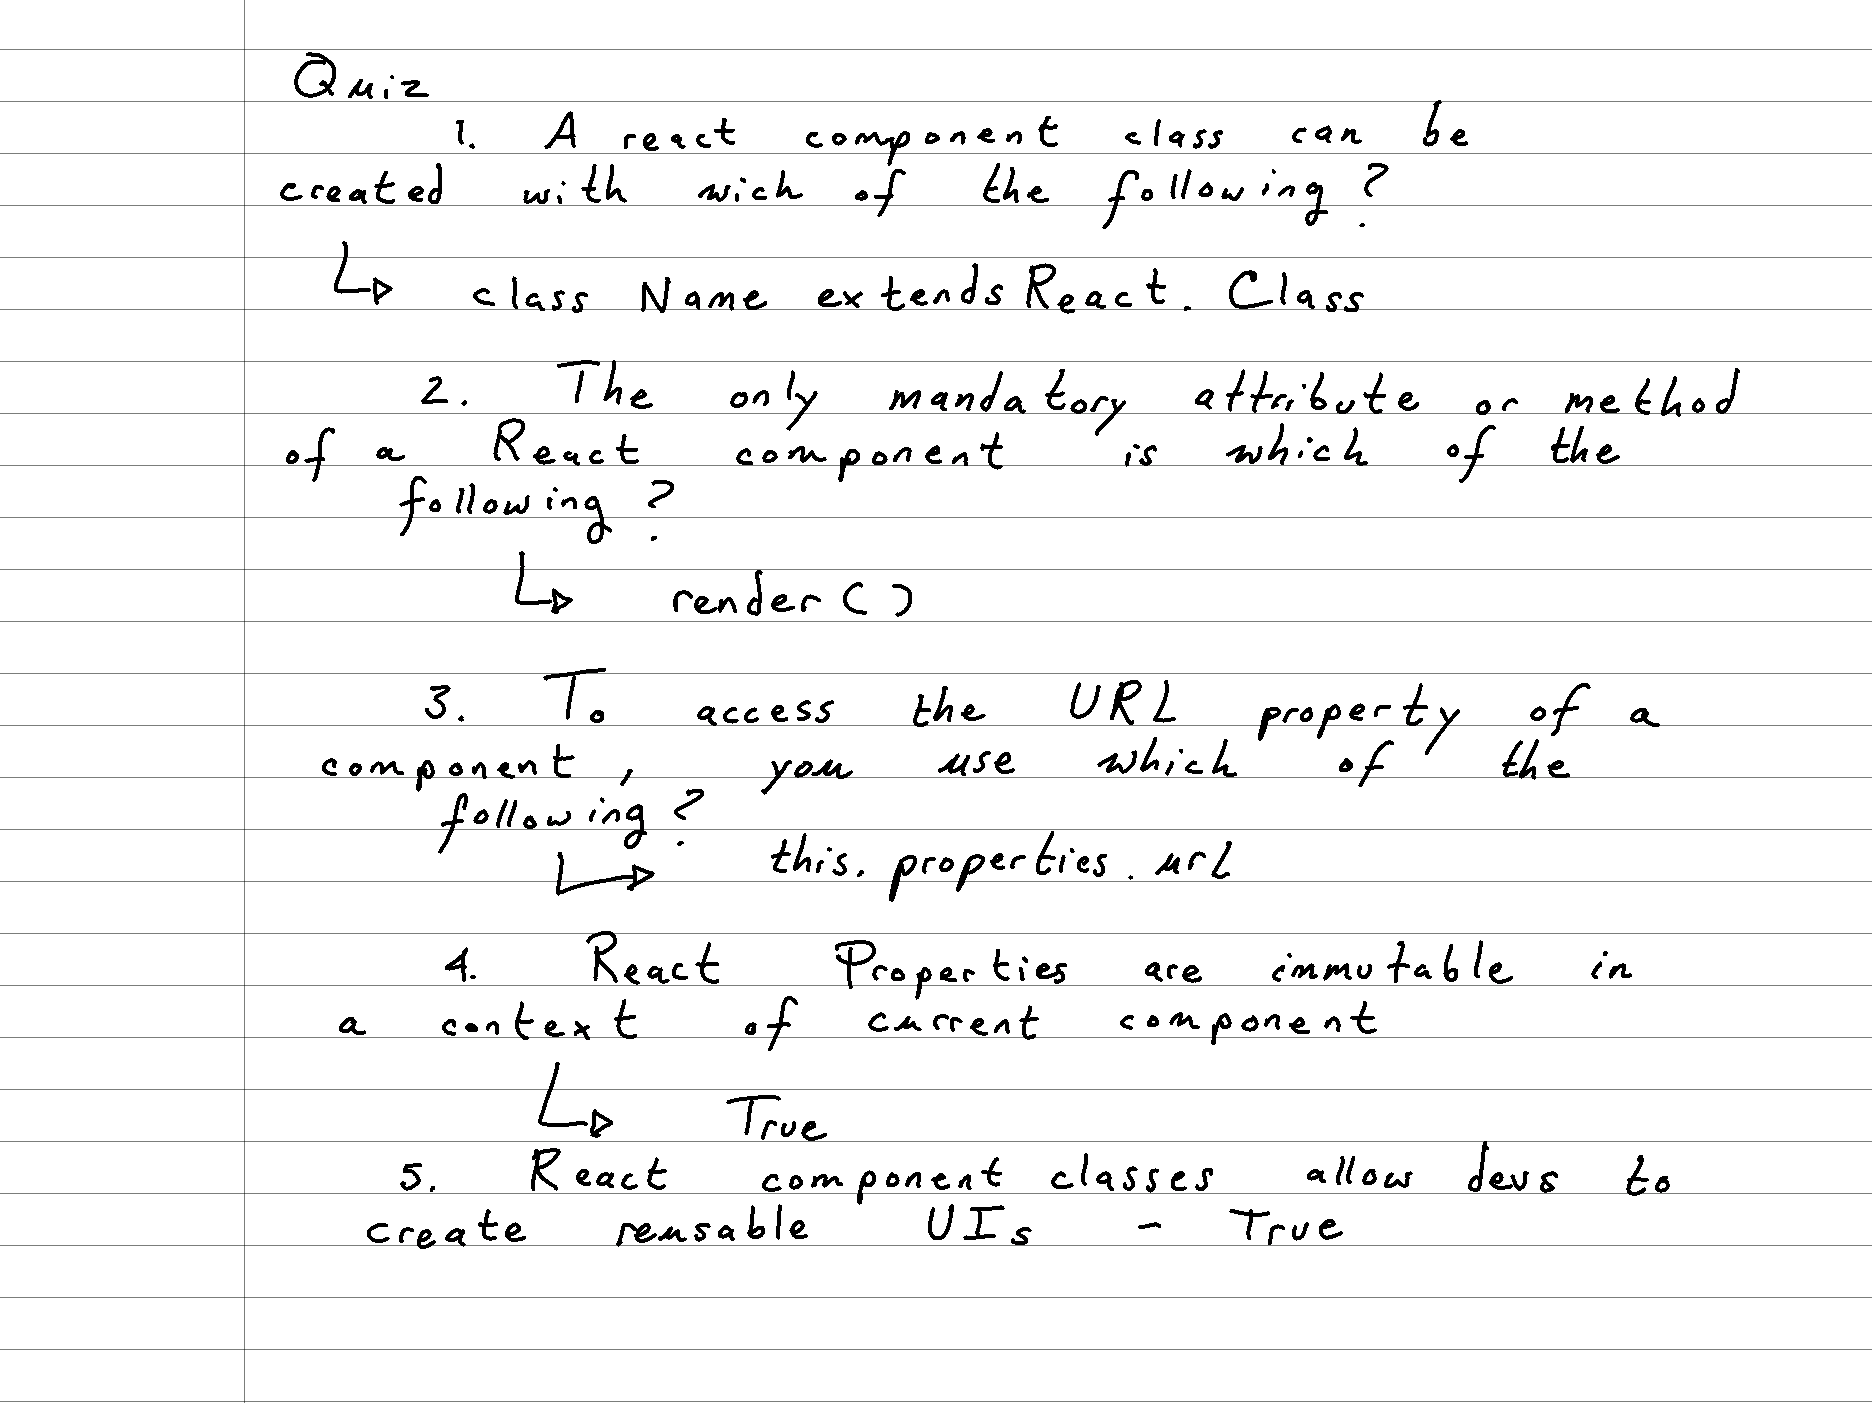 Quiz
1. A react component class can be
created with wich of the following?
class Name extends React. Class
2. The only mandatory attribute or method
of a React component is which of the
following?
render()
3. To access the URL property of a
component, you use which of the
following?
this. properties. url
4. React Properties are immutable in
a context of current component
True
5. React component classes allow devs to
create reusable UIs - True